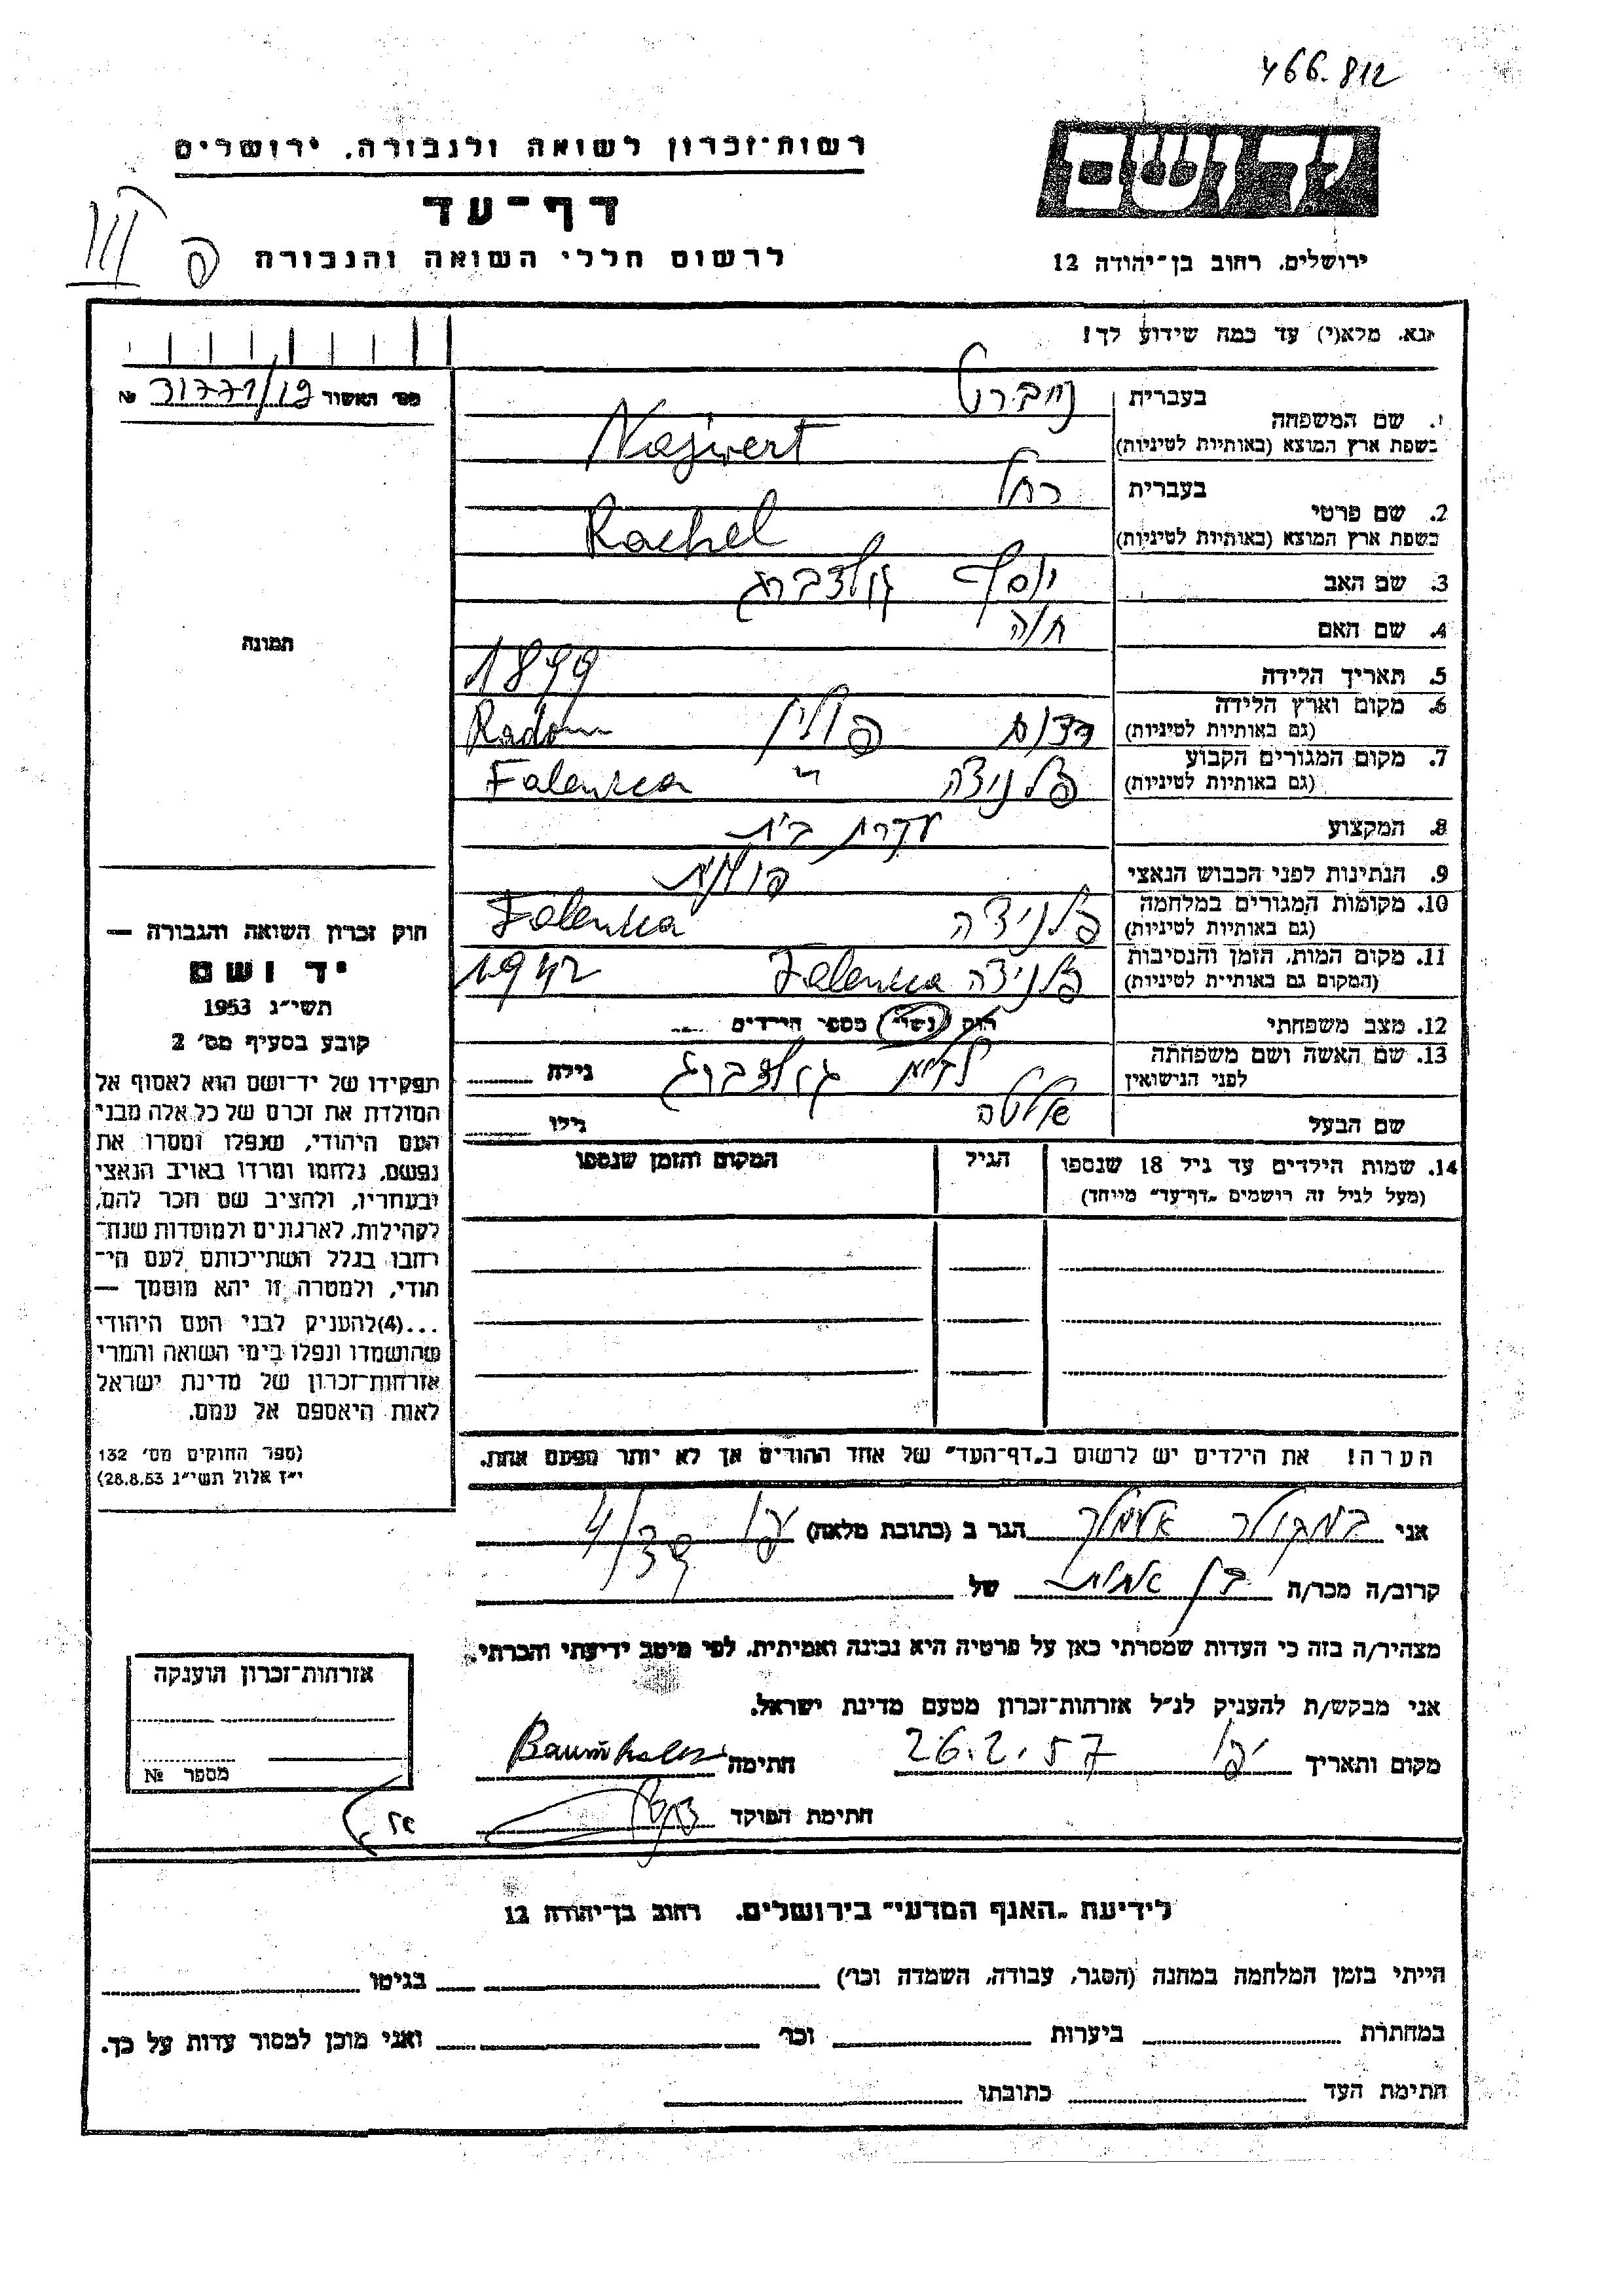 466.812
רשות־זכרון לשואה ולגבורה, ירושלים
יד ושם
דף־עד
לרשום חללי השואה והגבורה
פ
ירושלים, רחוב בן־יהודה 12
נא, מלא(י) עד כמה שידוע לך!
מס׳ האשור № 31771/19
1. שם המשפחה
בעברית
בשפת ארץ המוצא (באותיות לטיניות)
Najwert
2. שם פרטי
בעברית רחל
בשפת ארץ המוצא (באותיות לטיניות)
Rachel
3. שם האב יוסף גולדברג
4. שם האם חוה
5. תאריך הלידה 1899
6. מקום וארץ הלידה
(גם באותיות לטיניות) רדום פולין Radom
7. מקום המגורים הקבוע
(גם באותיות לטיניות) פלניצה " Falenica
8. המקצוע עקרת בית
9. הנתינות לפני הכבוש הנאצי פולנית
10. מקומות המגורים במלחמה
(גם באותיות לטיניות) פלניצה Falenica
11. מקום המות, הזמן והנסיבות
(המקום גם באותיות לטיניות) פלניצה Falenica 1942
12. מצב משפחתי רווק נשוי מספר הילדים
13. שם האשה ושם משפחתה
לפני הנישואין גולדברג גילה
שם הבעל גילו
14. שמות הילדים עד גיל 18 שנספו
(מעל לגיל זה רושמים „דף־עד״ מיוחד)
הגיל
המקום והזמן שנספו
תמונה
חוק זכרון השואה והגבורה —
יד ושם
תשי״ג 1953
קובע בסעיף מס׳ 2
תפקידו של יד־ושם הוא לאסוף אל
המולדת את זכרם של כל אלה מבני
העם היהודי, שנפלו ומסרו את
נפשם, נלחמו ומרדו באויב הנאצי
ובעוזריו, ולהציב שם וזכר להם,
לקהילות, לארגונים ולמוסדות שנח־
רחבו בגלל השתייכותם לעם הי־
הודי, ולמטרה זו יהא מוסמך —
...(4)להעניק לבני העם היהודי
שהושמדו ונפלו בימי השואה והמרי
אזרחות־זכרון של מדינת ישראל
לאות היאספם אל עמם.
(ספר החוקים מס׳ 132
י״ז אלול תשי״ג 28.8.53)
הערה! את הילדים יש לרשום ב„דף־העד״ של אחד ההורים אך לא יותר מפעם אחת.
אני הגר ב (כתובת מלאה)
קרוב/ה מכר/ה בן אחות של
מצהיר/ה בזה כי העדות שמסרתי כאן על פרטיה היא נכונה ואמיתית, לפי מיטב ידיעתי והכרתי.
אני מבקש/ת להעניק לנ״ל אזרחות־זכרון מטעם מדינת ישראל.
מקום ותאריך יפו 26.2.57 חתימה
חתימת הפוקד
אזרחות־זכרון הוענקה
מספר №
לידיעת „האגף המדעי״ בירושלים, רחוב בן־יהודה 12
הייתי בזמן המלחמה במחנה (הסגר, עבודה, השמדה וכו׳) בגיטו
במחתרת ביערות וכו׳ ואני מוכן למסור עדות על כך.
חתימת העד כתובתו